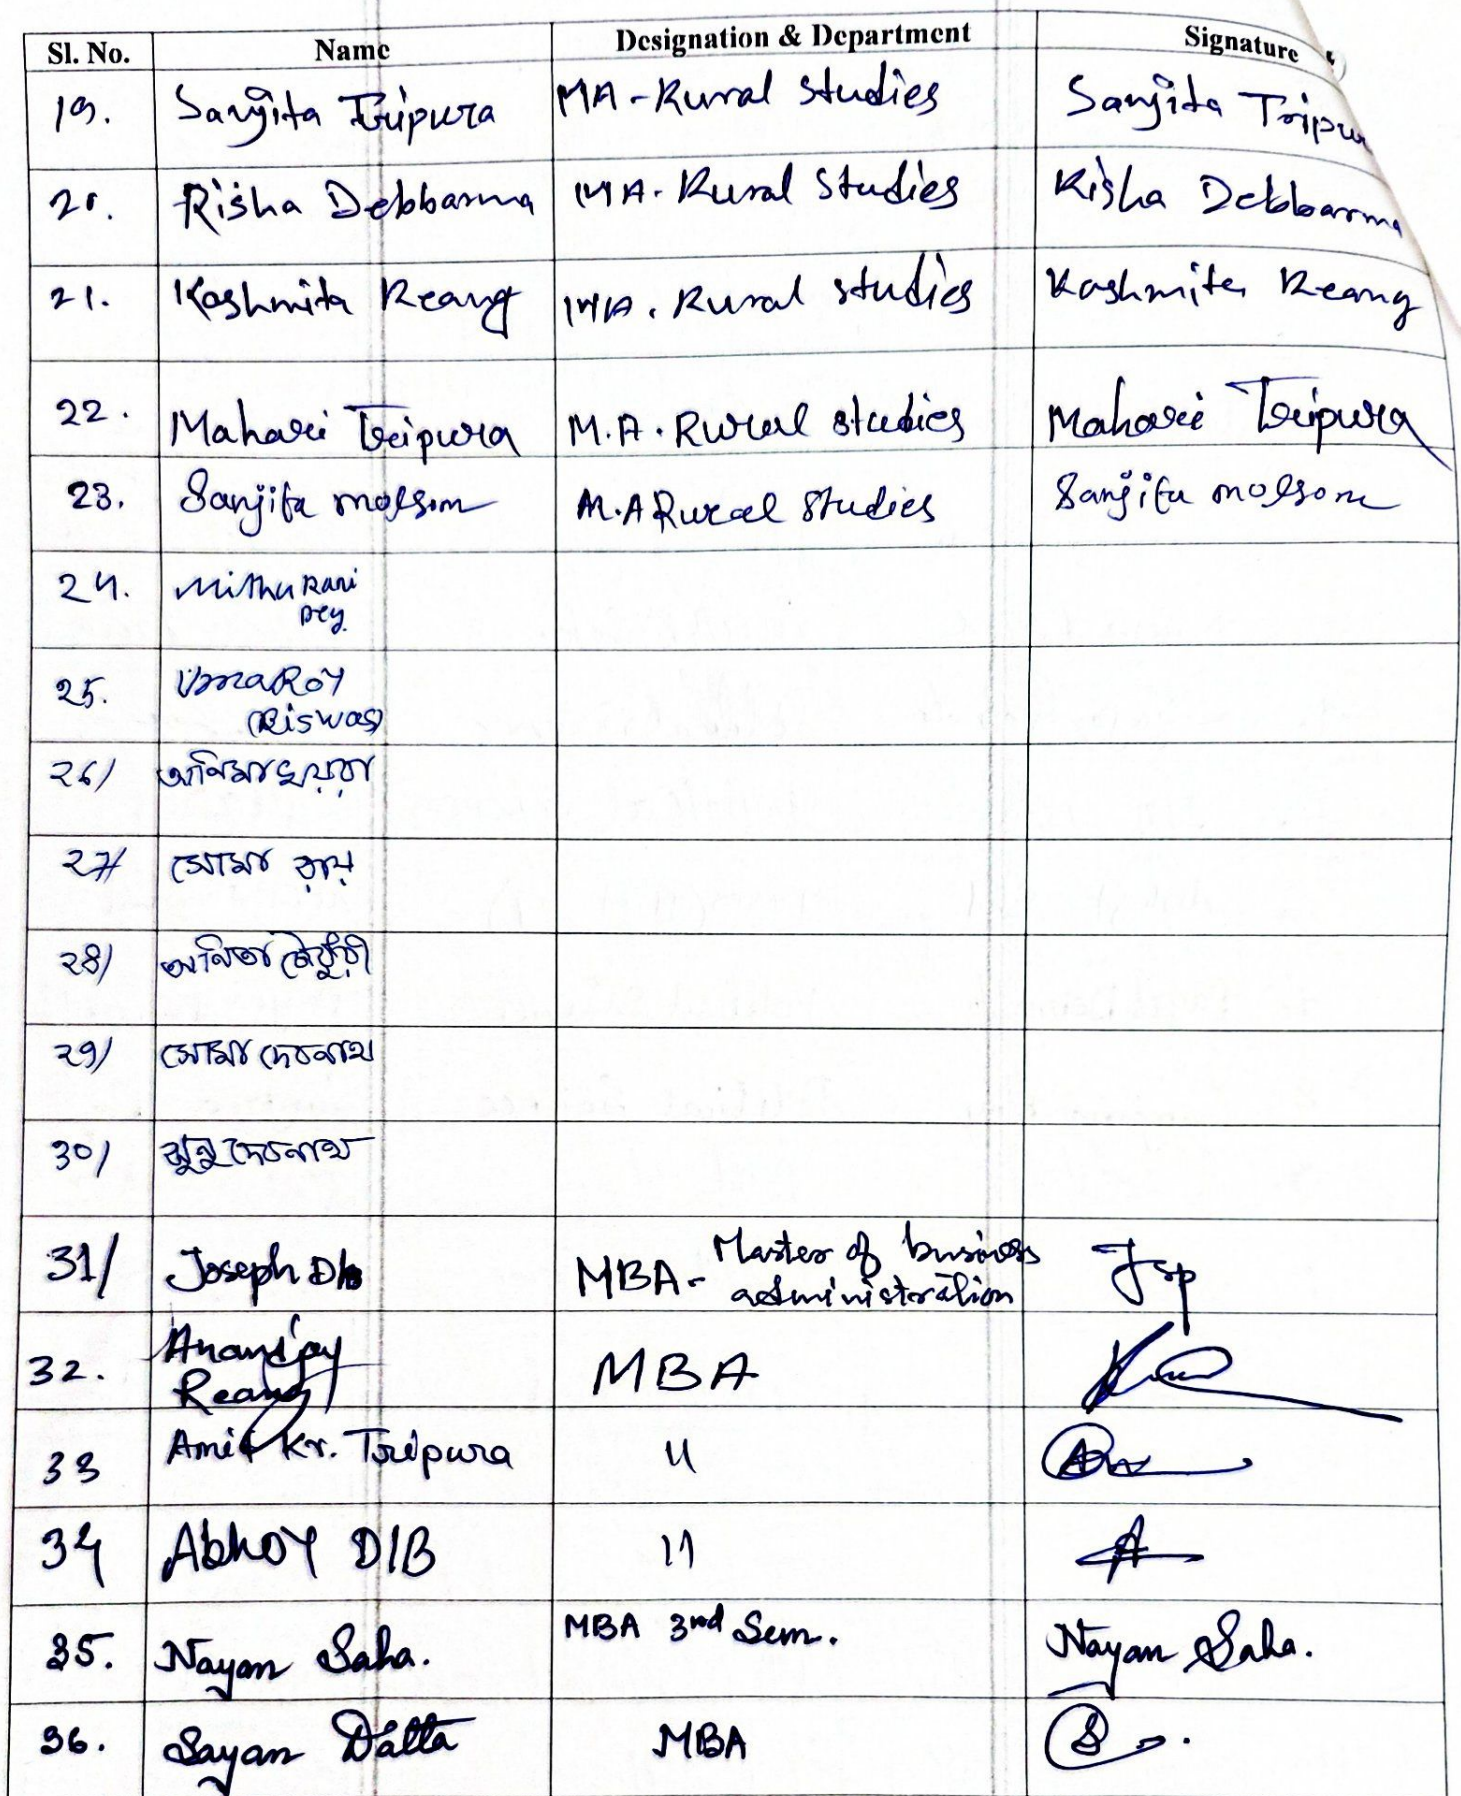 Sl. No. Name Designation & Department Signature
19. Sanjita Tripura MA - Rural Studies Sanjita Tripur
20. Risha Debbarma MA. Rural Studies Risha Debbarma
21. Kashmita Reang MA. Rural studies Kashmita Reang
22. Maharei Tripura M.A. Rural studies Maharei Tripura
23. Sanjita molsom M.A Rural Studies Sanjita molsom
24. Mithu Rani
Dey
25. Uma Roy
(Biswas)
২৬/
২৭/ সোমা রায়
২৮/ অনিতা চৌধুরী
২৯/ সোমা দেবনাথ
৩০/ ঝুনু দেবনাথ
31/ Joseph D/b MBA - Master of business
administration Jsp
32. Anandjoy
Reang MBA
33 Amit Kr. Tripura 11
34 Abhoy D/B 11 A
35. Nayan Saha. MBA 3rd Sem. Nayan Saha.
36. Sayan Datta MBA S